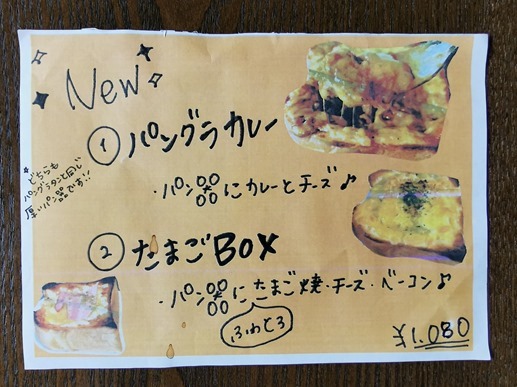 New
① パングラカレー
・パン器にカレーとチーズ♪
*どちらも
パングラタンと同じ
厚いパン器です!!
② たまごBOX
・パン器にたまご焼・チーズ・ベーコン♪
ふわとろ
¥1,080